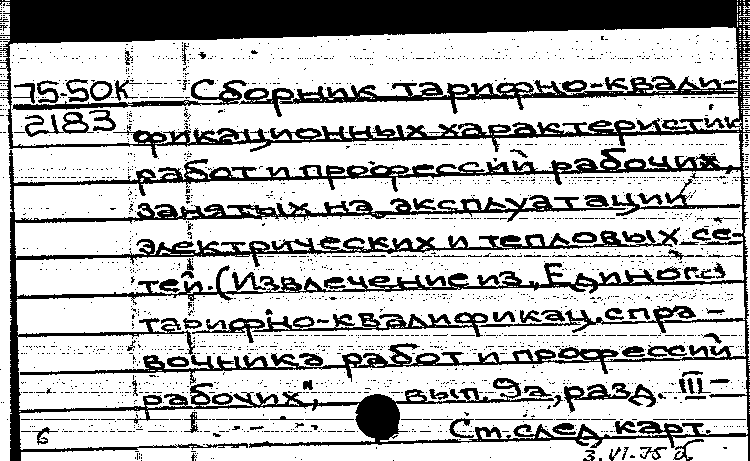 75-50к Сборник тарифно-квали-
2183 фикационных характеристик
работ и профессий рабочих,
занятых на эксплуатации
электрических и тепловых се-
тей. (Извлечение из „Единого
тарифно-квалификац. спра-
вочника работ и профессий
рабочих", вып. 9а, разд. III-
6 См. след. карт.
3.VI-75